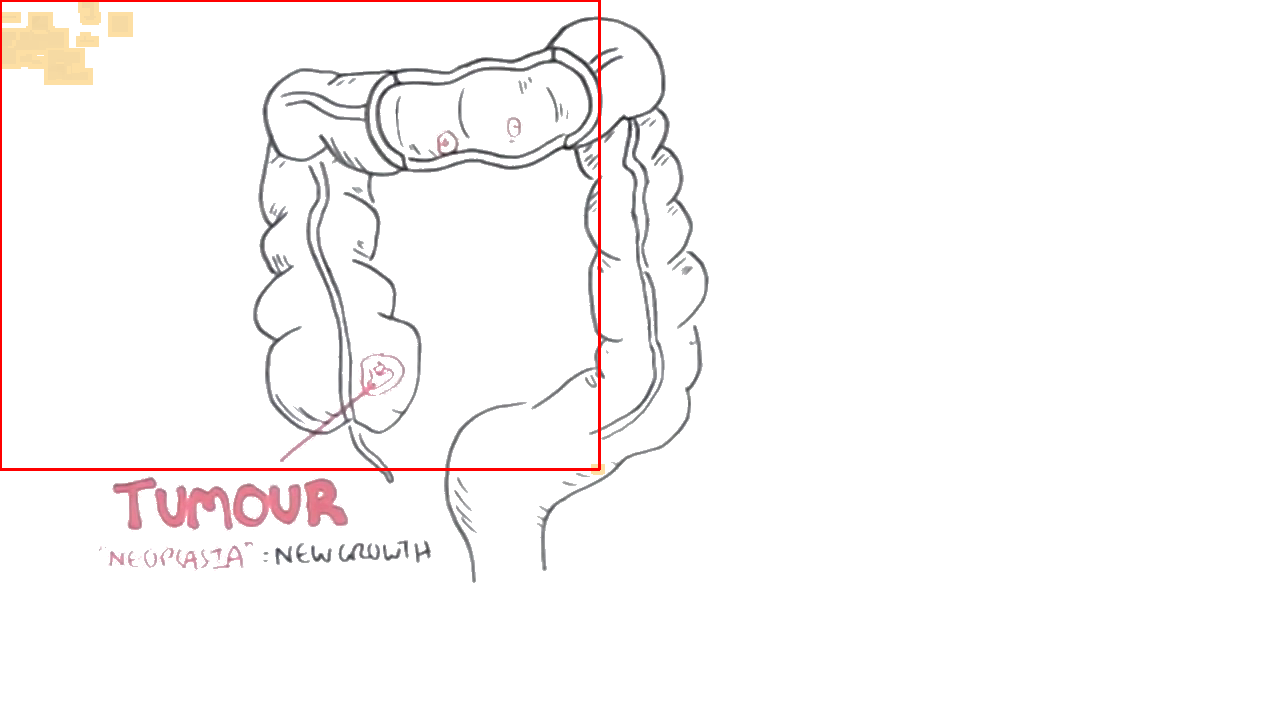 TUMOUR
"NEOPLASIA" : NEW GROWTH